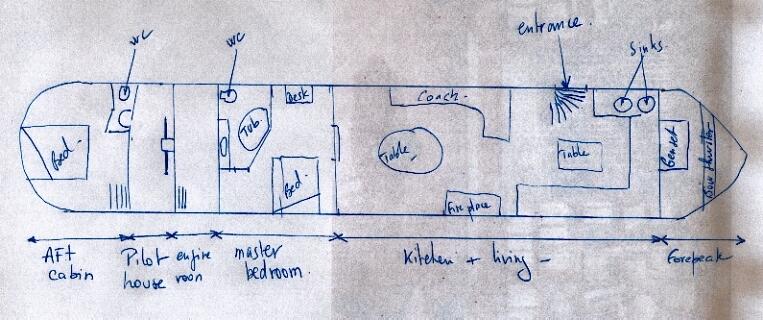 entrance.
WC
WC
Sinks.
Desk
Coach.
Tub.
Bed.
Table
Table
Genset
Bow thruster
Bed.
Fire place
AFt
cabin
Pilot
house
engine
room
master
bedroom.
Kitchen + living -
Forepeak